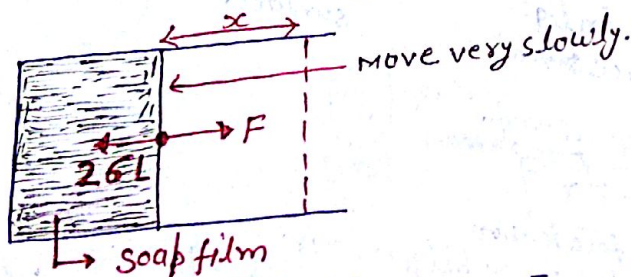 x
move very slowly.
F
2σL
soap film